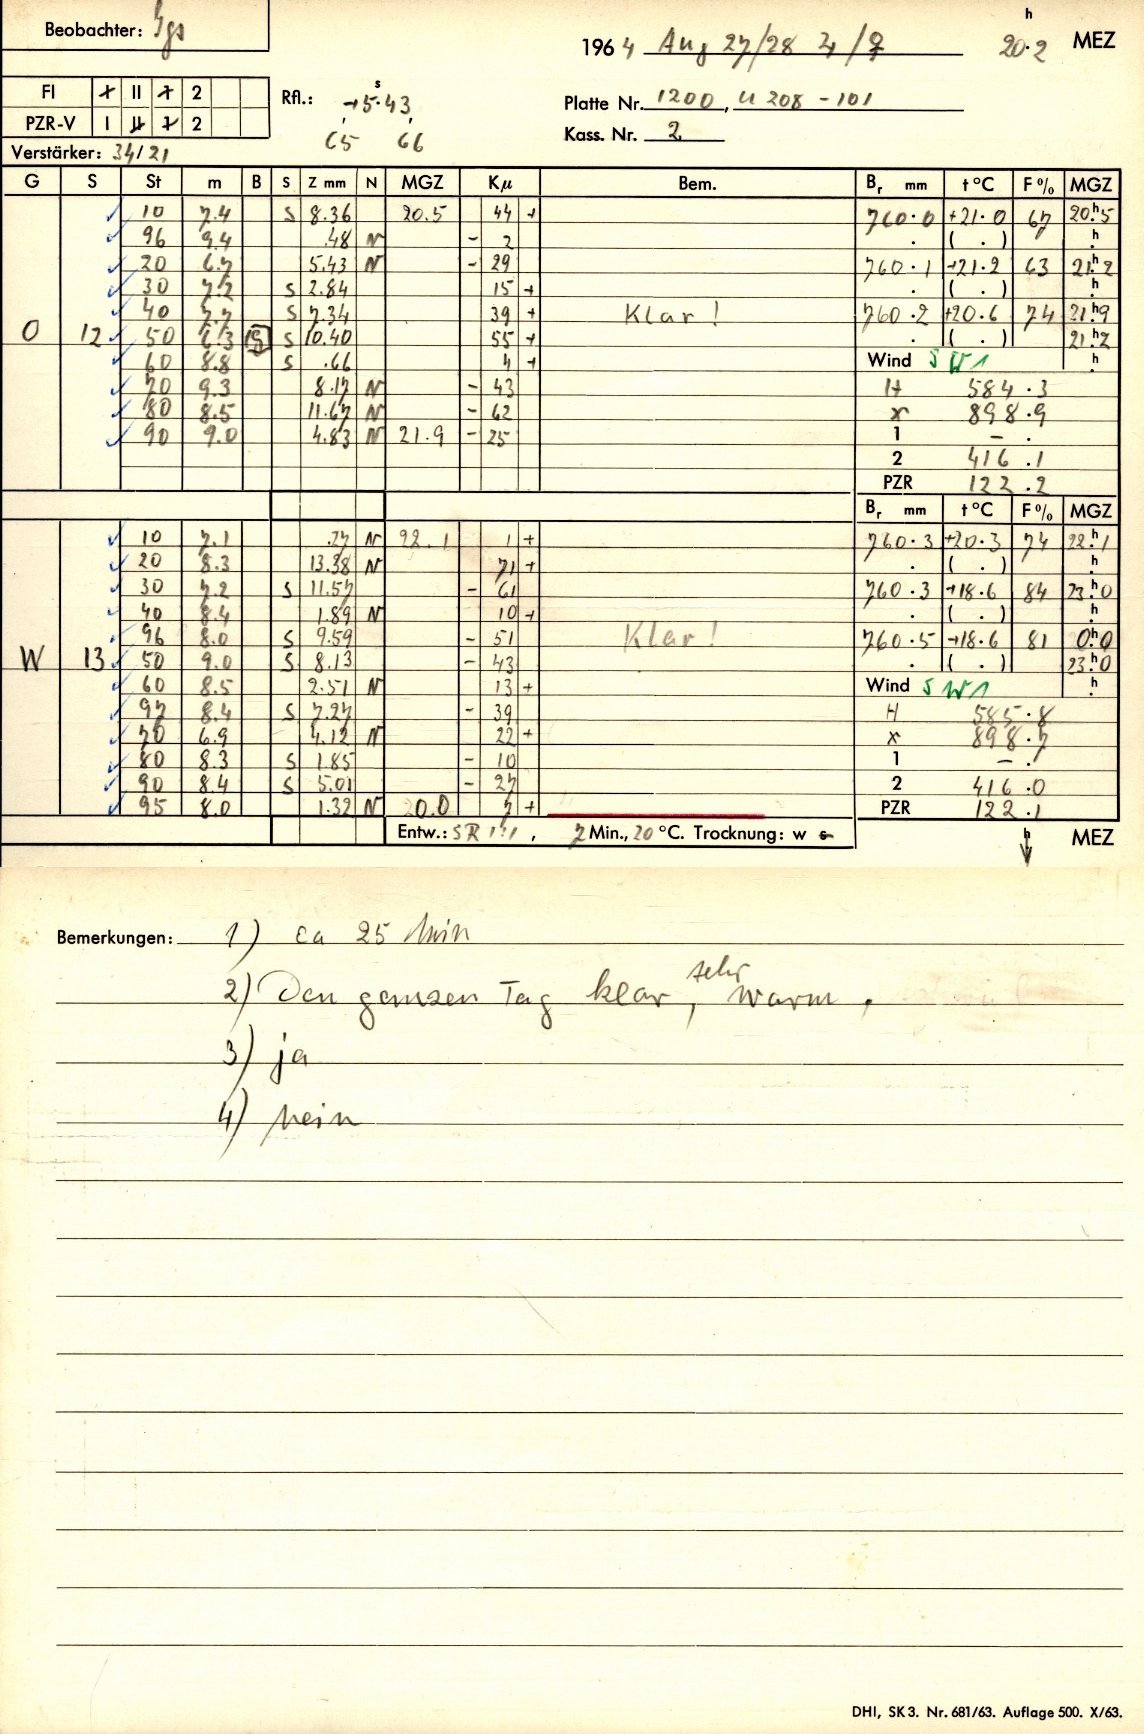 Beobachter:
1964 Aug 27/28 20.2 h MEZ
FI I II 1 2
Rfl.: +5.43 s
Platte Nr. 1200, U 208 - 101
PZR-V I II 1 2
65 66
Kass. Nr. 2
Verstärker: 34/21
G S St m B S Z mm N MGZ Kμ Bem. Br mm t °C F % MGZ
10 7.4 S 8.36 20.5 44 + 760.0 +21.0 67 20.5 h
96 9.4 .48 N - 2 . ( . ) h
20 6.7 5.43 N - 29 760.1 +21.2 63 21.2 h
30 7.2 S 2.84 15 + . ( . ) h
40 7.7 S 7.34 39 + Klar! 760.2 +20.6 74 21.9 h
O 12 50 6.3 S 10.40 55 + . ( . ) 21.2 h
60 8.8 S .66 4 + Wind SW1 h
70 9.3 8.17 N - 43 H 584.3
80 8.5 11.67 N - 62 r 898.9
90 9.0 4.83 N 21.9 - 25 1 - .
2 416.1
PZR 122.2
Br mm t °C F % MGZ
10 7.1 .27 N 22.1 1 + 760.3 +20.3 74 22.1 h
20 8.3 13.38 N 71 + . ( . ) h
30 7.2 S 11.57 - 61 760.3 +18.6 84 23.0 h
40 8.4 1.89 N 10 + . ( . ) h
96 8.0 S 9.59 - 51 Klar! 760.5 +18.6 81 0.0 h
W 13 50 9.0 S 8.13 - 43 . ( . ) 23.0 h
60 8.5 2.51 N 13 + Wind SW1 h
97 8.4 S 7.27 - 39 H 585.8
70 6.9 4.12 N 22 + r 898.7
80 8.3 S 1.85 - 10 1 - .
90 8.4 S 5.01 - 27 2 416.0
95 8.0 1.32 N 0.0 7 + PZR 122.1
Entw.: SR, 7 Min., 20 °C. Trocknung: w s h MEZ
Bemerkungen: 1) ca 25 Min
2) Den ganzen Tag klar, sehr warm.
3) ja
4) nein
DHI, SK 3. Nr. 681/63. Auflage 500. X/63.